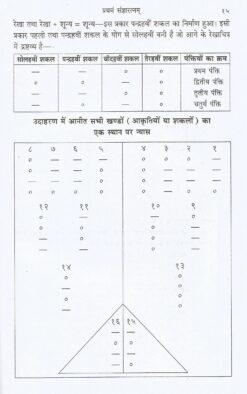 प्रथमं संज्ञारत्नम् १५
रेखा तथा रेखा + शून्य = शून्य—इस प्रकार पन्द्रहवीं शकल का निर्माण हुआ। इसी
प्रकार पहली तथा पन्द्रहवीं शकल के योग से सोलहवीं बनी है जो आगे के रेखाचित्र
में द्रष्टव्य है—
सोलहवीं शकल पन्द्रहवीं शकल चौदहवीं शकल तेरहवीं शकल पंक्तियों का क्रम
प्रथम पंक्ति
द्वितीय पंक्ति
तृतीय पंक्ति
चतुर्थ पंक्ति
उदाहरण में आनीत सभी खण्डों (आकृतियों या शकलों) का
एक स्थान पर न्यास
८ ७ ६ ५ ४ ३ २ १
१२ ११ १० ९
१४ १३
१६ १५